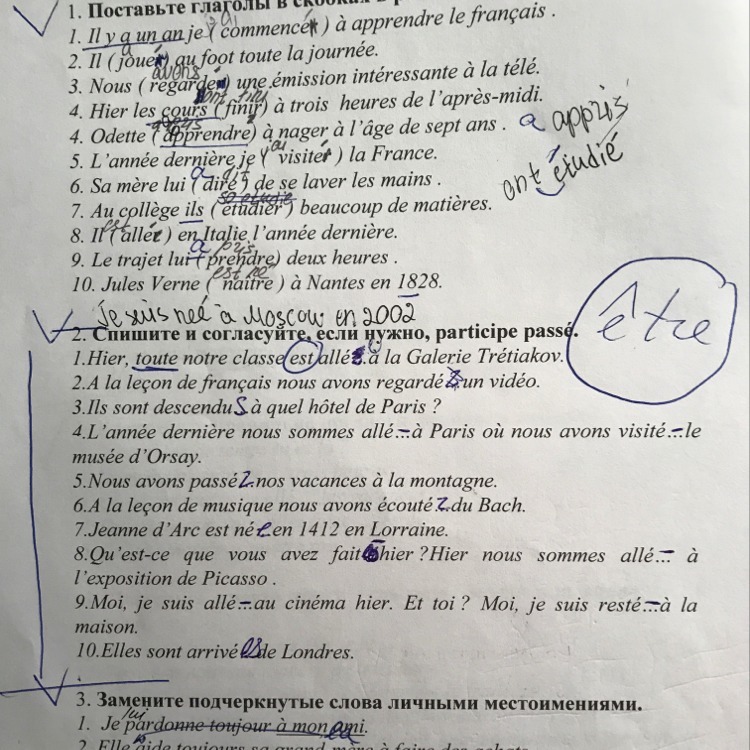 1. Поставьте глаголы в скобках в
1. Il y a un an je ( commencer ) à apprendre le français .
a
2. Il ( jouer) au foot toute la journée.
avons
3. Nous ( regarder) une émission intéressante à la télé.
ont fini
4. Hier les cours (finir) à trois heures de l'après-midi.
a appris
4. Odette ( apprendre) à nager à l'âge de sept ans .
ai
5. L'année dernière je ( visiter ) la France.
a dit
6. Sa mère lui ( dire ) de se laver les mains .
ont étudié
7. Au collège ils ( étudier ) beaucoup de matières.
est
8. Il (aller ) en Italie l'année dernière.
a pris
9. Le trajet lui ( prendre) deux heures .
est né
10. Jules Verne ( naître ) à Nantes en 1828.
Je suis neé à Moscou en 2002
2. Спишите и согласуйте, если нужно, participe passé.
être
1.Hier, toute notre classe est allé à la Galerie Trétiakov.
2.A la leçon de français nous avons regardé un vidéo.
3.Ils sont descendus à quel hôtel de Paris ?
4.L'année dernière nous sommes allé... à Paris où nous avons visité... le
musée d'Orsay.
5.Nous avons passé nos vacances à la montagne.
6.A la leçon de musique nous avons écouté du Bach.
7.Jeanne d'Arc est née en 1412 en Lorraine.
8.Qu'est-ce que vous avez fait hier ?Hier nous sommes allé... à
l'exposition de Picasso .
9.Moi, je suis allé... au cinéma hier. Et toi ? Moi, je suis resté... à la
maison.
10.Elles sont arrivées de Londres.
3. Замените подчеркнутые слова личными местоимениями.
lui
1. Je pardonne toujour à mon ami.
2. Elle aide toujours sa grand-mère à faire des achats.